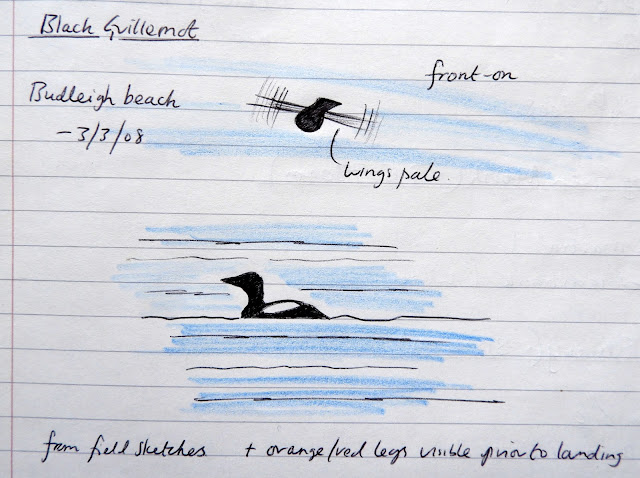 Black Guillemot
front-on
Budleigh beach
- 3/3/08
wings pale.
from field sketches + orange/red legs visible prior to landing